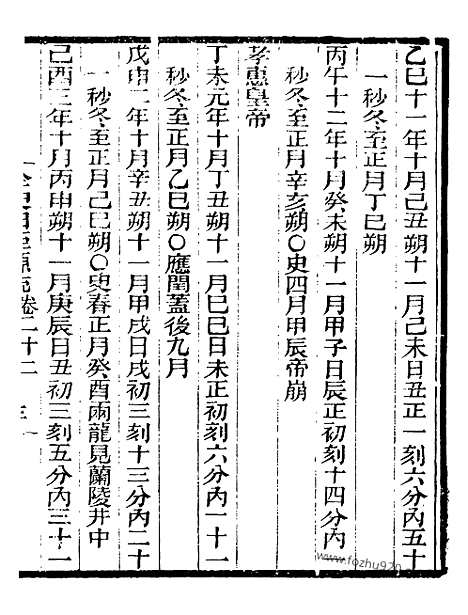 乙巳十一年十月己丑朔十一月己未日丑正一刻六分內五十
一秒冬至正月丁巳朔
丙午十二年十月癸未朔十一月甲子日辰正初刻十四分內
秒冬至正月辛亥朔○史四月甲辰帝崩
孝惠皇帝
丁未元年十月丁丑朔十一月己巳日未正初刻六分內一十一
秒冬至正月乙巳朔○應閏蓋後九月
戊申二年十月辛丑朔十一月甲戌日戌初三刻十三分內二十
一秒冬至正月己巳朔○史春正月癸酉兩龍見蘭陵井中
己酉三年十月丙申朔十一月庚辰日丑初三刻五分內三十一
卷二十二
三
www.fozhu920.com